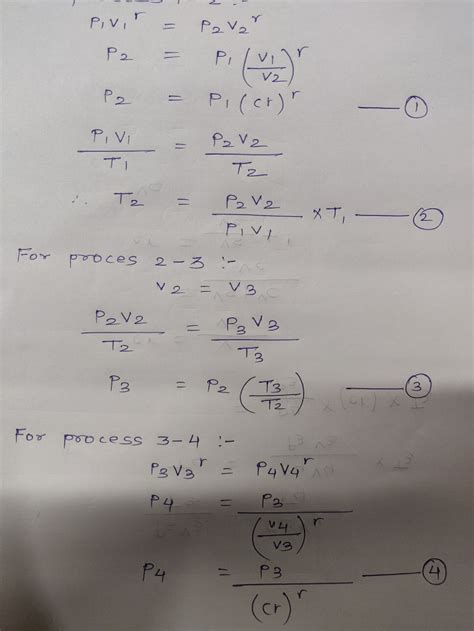 P1V1^r = P2V2^r
P2 = P1 (V1/V2)^r
P2 = P1 (cr)^r —— ①
P1V1/T1 = P2V2/T2
∴ T2 = P2V2/P1V1 × T1 —— ②
For proces 2-3 :-
V2 = V3
P2V2/T2 = P3V3/T3
P3 = P2 (T3/T2) —— ③
For process 3-4 :-
P3V3^r = P4V4^r
P4 = P3/(V4/V3)^r
P4 = P3/(cr)^r —— ④